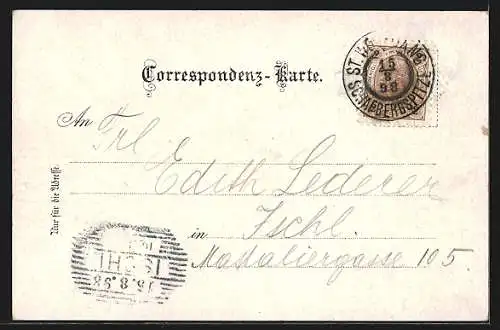 Correspondenz-Karte.
ST. WOLFGANG
15
8
98
SCHAFBERGSPITZE
An Frl
Edith Lederer
in Ischl.
Maxaliergasse 105.
Nur für die Adresse.
ISCHL
15.8.98